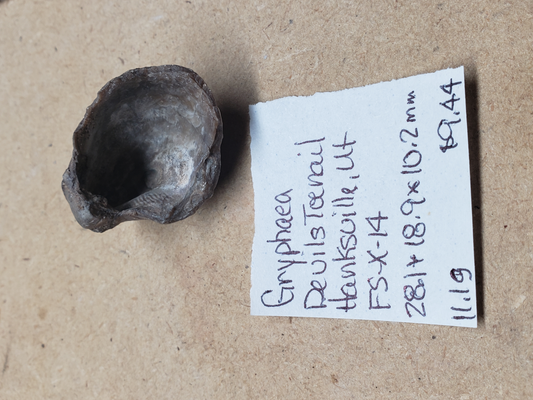 Gryphaea
Devils Toenail
Hanksville, Ut
FS-X-14
28.1 x 18.9 x 10.2mm
11.19 $9.44